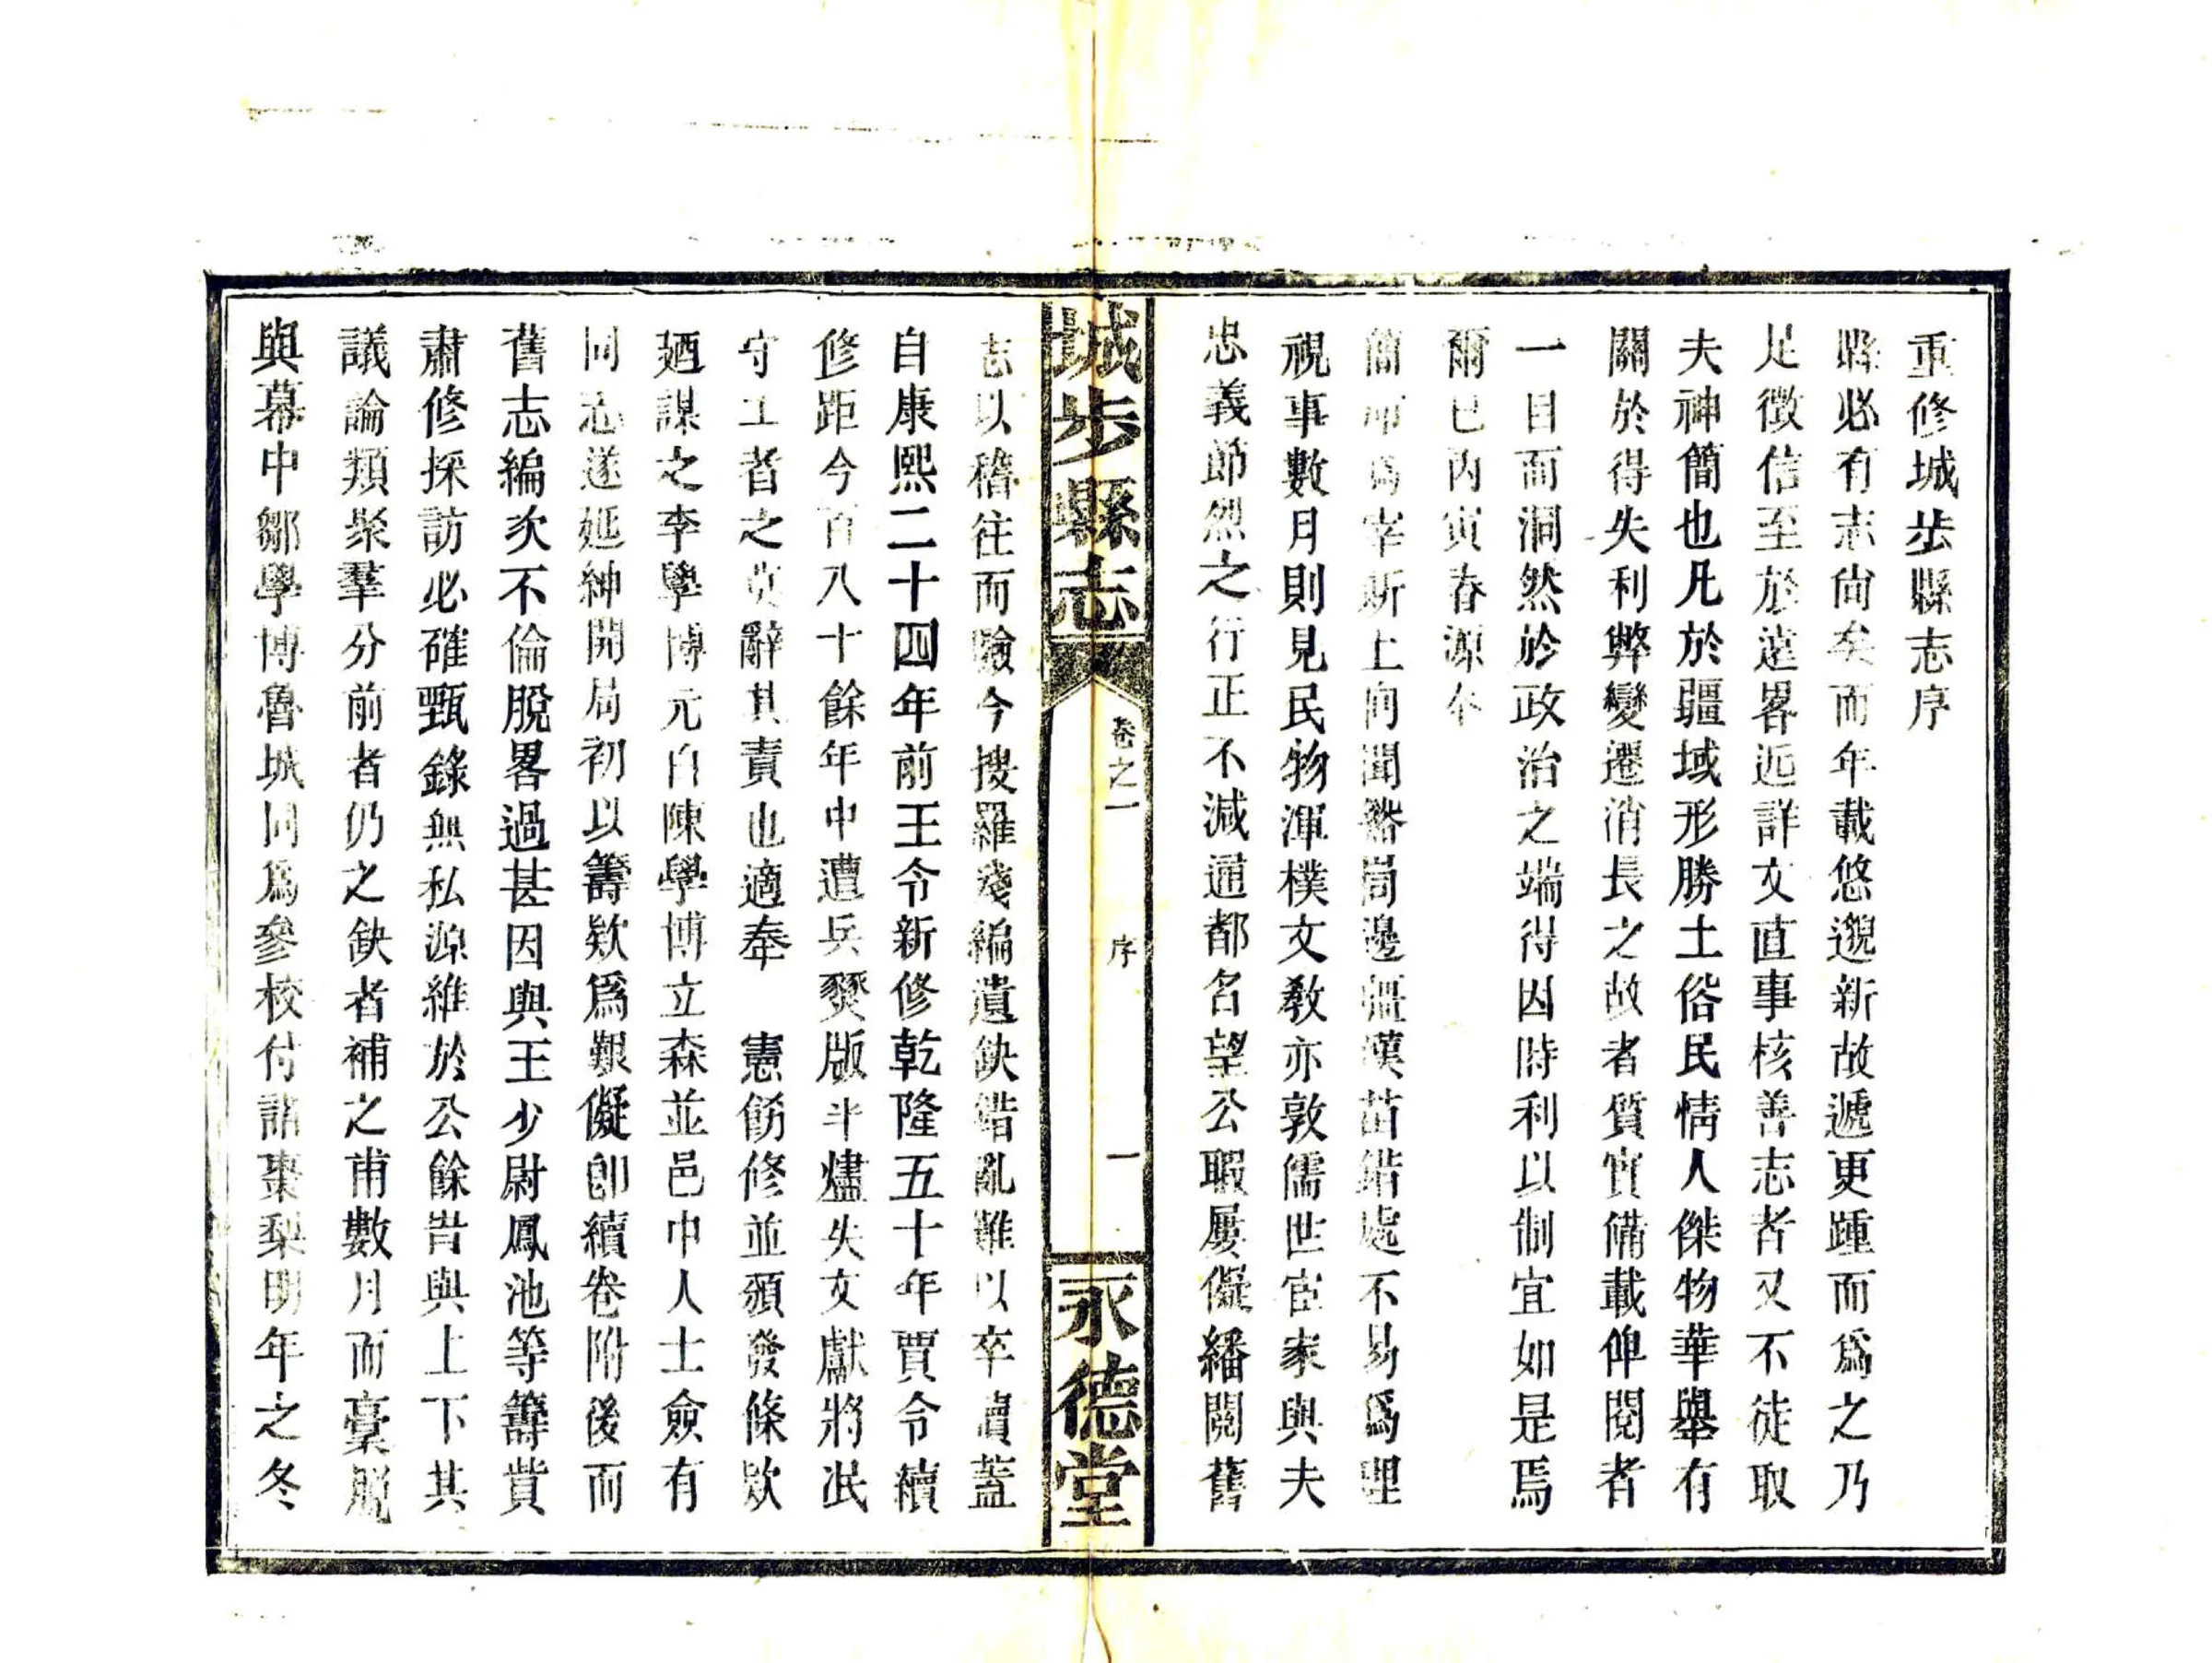 重修城步縣志序
縣必有志尙矣而年載悠邈新故遞更踵而爲之乃
足徵信至於遠畧近詳文直事核善志者又不徒取
夫神簡也凡於疆域形勝土俗民情人傑物華舉有
關於得失利弊變遷消長之故者質實備載俾閱者
一目而洞然於政治之端得因時利以制宜如是焉
爾已丙寅春源奉
簡命爲宰斯土向聞僻崗邊疆漢苗錯處不易爲理
視事數月則見民物渾樸文敎亦敦儒世宦家與夫
忠義節烈之行正不減通都名望公暇屢儗繙閱舊
城步縣志
卷之一
序
一
永德堂
志以稽往而驗今搜羅殘編遺缺錯亂難以卒讀蓋
自康熙二十四年前王令新修乾隆五十年賈令續
修距今百八十餘年中遭兵燹版半燼失文獻將泯
守土者之莫辭其責也適奉　憲飭修並頒發條欵
廼謀之李學博元自陳學博立森並邑中人士僉有
同志遂延紳開局初以籌欵爲艱儗卽續卷附後而
舊志編次不倫脫畧過甚因與王少尉鳳池等籌貲
肅修採訪必確甄錄無私源維於公餘旹與上下其
議論類聚羣分前者仍之缺者補之甫數月而稾脫
與幕中鄒學博魯城同爲參校付諸棗梨明年之冬